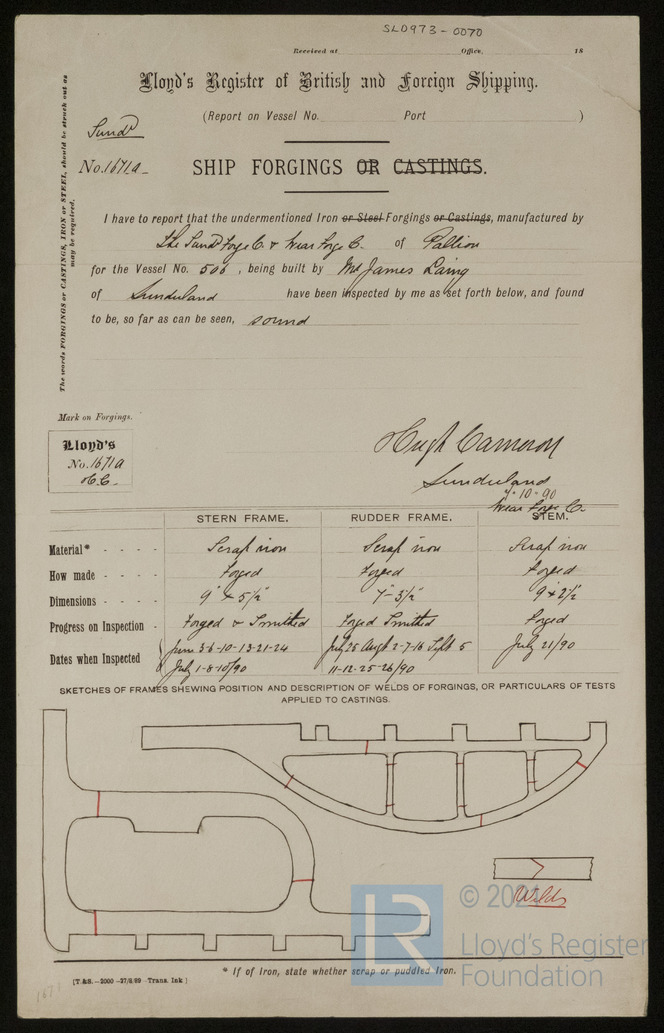 SLD973-0070
Received at Office, 18
Lloyd's Register of British and Foreign Shipping.
(Report on Vessel No. Port )
Sundd
No. 1671a
SHIP FORGINGS OR CASTINGS.
The words FORGINGS or CASTINGS, IRON or STEEL, should be struck out as
may be required.
I have to report that the undermentioned Iron or Steel Forgings or Castings, manufactured by
The Sundd Forge Co. & Wear Forge Co. of Pallion
for the Vessel No. 506, being built by Mr James Laing
of Sunderland have been inspected by me as set forth below, and found
to be, so far as can be seen, sound
Mark on Forgings.
Lloyd's
No. 1671a
H.C.
Hugh Cameron
Sunderland
7-10-90
Wear Forge Co.
STERN FRAME. RUDDER FRAME. STEM.
Material* - - - - Scrap iron Scrap iron Scrap iron
How made - - - - Forged Forged Forged
Dimensions - - - - 9" x 5½" 7"-3½" 9 x 2½
Progress on Inspection - Forged & Smitted Forged Smitted Forged
Dates when Inspected June 3-6-10-13-21-24 July 25 Augt 2-7-16 Sept 5 July 21/90
July 1-8-10/90 11-12-25-26/90
SKETCHES OF FRAMES SHEWING POSITION AND DESCRIPTION OF WELDS OF FORGINGS, OR PARTICULARS OF TESTS
APPLIED TO CASTINGS.
Welds
© 2021
LR
Lloyd's Register
Foundation
* If of Iron, state whether scrap or puddled Iron.
[T.&S.—2000—27/8/89—Trans. Ink]